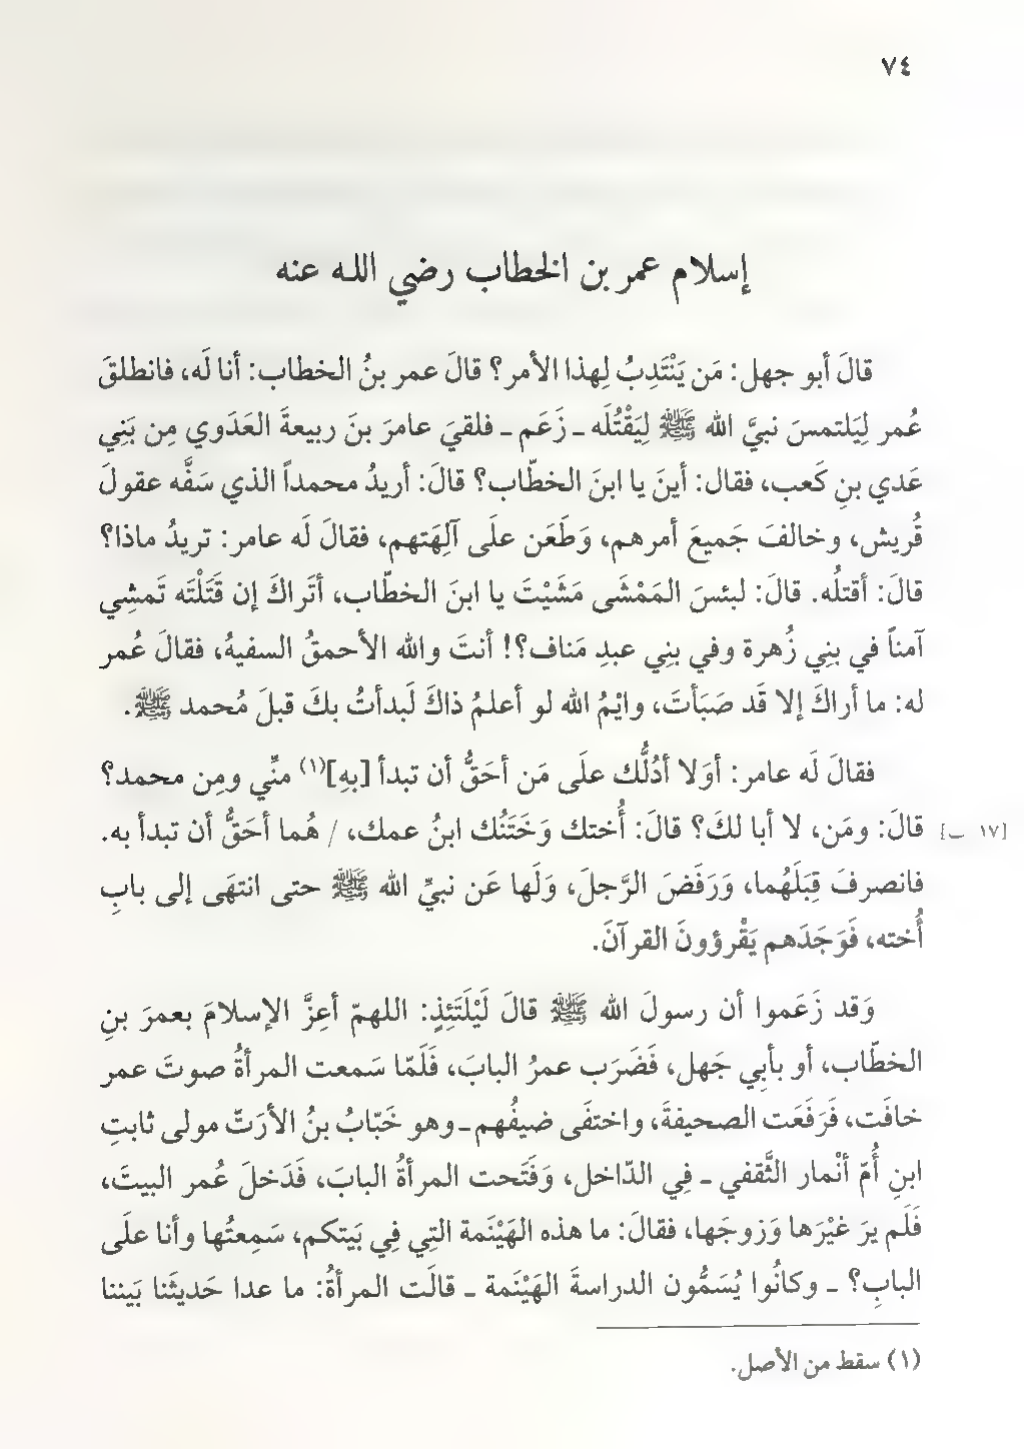 ٧٤
إسلام عمر بن الخطاب رضي الله عنه
قالَ أبو جهل: مَن يَنْتَدِبُ لِهذا الأمر؟ قالَ عمر بنُ الخطاب: أنا لَه، فانطلقَ
عُمر لِيَلتمسَ نبيَّ الله ﷺ لِيَقْتُلَه ـ زَعَم ـ فلقيَ عامرَ بنَ ربيعةَ العَدَوي مِن بَنِي
عَدي بنِ كَعب، فقال: أينَ يا ابنَ الخطّاب؟ قالَ: أريدُ محمداً الذي سَفَّه عقولَ
قُريش، وخالفَ جَميعَ أمرهم، وَطَعَن علَى آلِهَتهم، فقالَ لَه عامر: تريدُ ماذا؟
قالَ: أقتلُه. قالَ: لبئسَ المَمْشَى مَشَيْتَ يا ابنَ الخطّاب، أتَراكَ إن قَتَلْتَه تَمشِي
آمناً في بنِي زُهرة وفي بنِي عبدِ مَناف؟! أنتَ والله الأحمقُ السفيهُ، فقالَ عُمر
له: ما أراكَ إلا قَد صَبَأتَ، وايْمُ الله لو أعلمُ ذاكَ لَبدأتُ بكَ قبلَ مُحمد ﷺ.
فقالَ لَه عامر: أوَلا أدُلُّك علَى مَن أحَقُّ أن تبدأ [بِهِ](١) منِّي ومِن محمد؟
قالَ: ومَن، لا أبا لكَ؟ قالَ: أُختك وَخَتَنُك ابنُ عمك، / هُما أحَقُّ أن تبدأ به. [١٧ ب]
فانصرفَ قِبَلَهُما، وَرَفَضَ الرَّجلَ، وَلَها عَن نبيِّ الله ﷺ حتى انتهَى إلى بابِ
أُخته، فَوَجَدَهم يَقْرؤونَ القرآنَ.
وَقد زَعَموا أن رسولَ الله ﷺ قالَ لَيْلَتَئِذٍ: اللهمّ أعِزَّ الإسلامَ بعمرَ بنِ
الخطّاب، أو بأبِي جَهل، فَضَرَب عمرُ البابَ، فَلَمّا سَمعت المرأةُ صوتَ عمر
خافَت، فَرَفَعَت الصحيفةَ، واختفَى ضيفُهم ـ وهو خَبّابُ بنُ الأرَتّ مولى ثابتِ
ابنِ أُمّ أنْمار الثَّقفي ـ فِي الدّاخل، وَفَتَحت المرأةُ البابَ، فَدَخلَ عُمر البيتَ،
فَلَم يرَ غيْرَها وَزوجَها، فقالَ: ما هذه الهَيْنَمة التِي فِي بَيتكم، سَمِعتُها وأنا علَى
البابِ؟ ـ وكانُوا يُسَمُّون الدراسةَ الهَيْنَمة ـ قالَت المرأةُ: ما عدا حَديثَنا بَيننا
(١) سقط من الأصل.